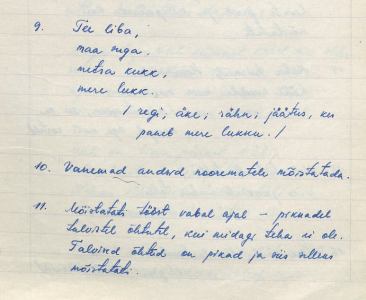 9. Tee liba,
maa suga.
metsa kukk,
mere lukk.
/ regi; äke; rähn; jäätus, kes
paneb mere lukku. /
10. Vanemad andsid noorematele mõistatada.
11. Mõistatati tööst vabal ajal – pikkadel
talvistel õhtutel, kui midagi teha ei ole.
Talvised õhtud on pikad ja siis sellega
mõistatati.